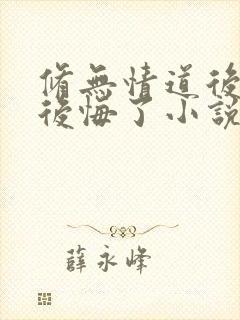 脩無情道後
後悔了小説
薛永峰